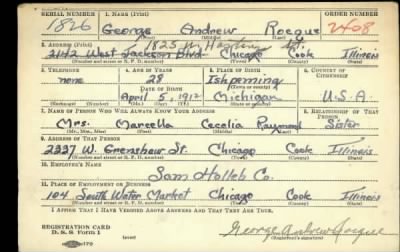 SERIAL NUMBER 1. NAME (Print) ORDER NUMBER
1826 George Andrew Rocque 2408
(First) (Middle) (Last)
1825 W.
2. ADDRESS (Print)
2142 West Jackson Blvd. Chicago Cook Illinois
(Number and street or R. F. D. number) (Town) (County) (State)
3. TELEPHONE 4. AGE IN YEARS 5. PLACE OF BIRTH 6. COUNTRY OF CITIZENSHIP
none 28 Ishpeming
DATE OF BIRTH (Town or county)
April 5, 1912 Michigan U.S.A.
(Exchange) (No.) (Mo.) (Day) (Yr.) (State or country)
7. NAME OF PERSON WHO WILL ALWAYS KNOW YOUR ADDRESS 8. RELATIONSHIP OF THAT PERSON
Mrs. Marcella Cecelia Raymond Sister
(Mr., Mrs., Miss) (First) (Middle) (Last)
9. ADDRESS OF THAT PERSON
2337 W. Grenshaw St. Chicago Cook Illinois
(Number and street or R. F. D. number) (Town) (County) (State)
10. EMPLOYER'S NAME
Sam Holleb Co.
11. PLACE OF EMPLOYMENT OR BUSINESS
104 South Water Market Chicago Cook Illinois
(Number and street or R. F. D. number) (Town) (County) (State)
I AFFIRM THAT I HAVE VERIFIED ABOVE ANSWERS AND THAT THEY ARE TRUE.
REGISTRATION CARD
D. S. S. Form 1 George Andrew Rocque
(Registrant's signature)